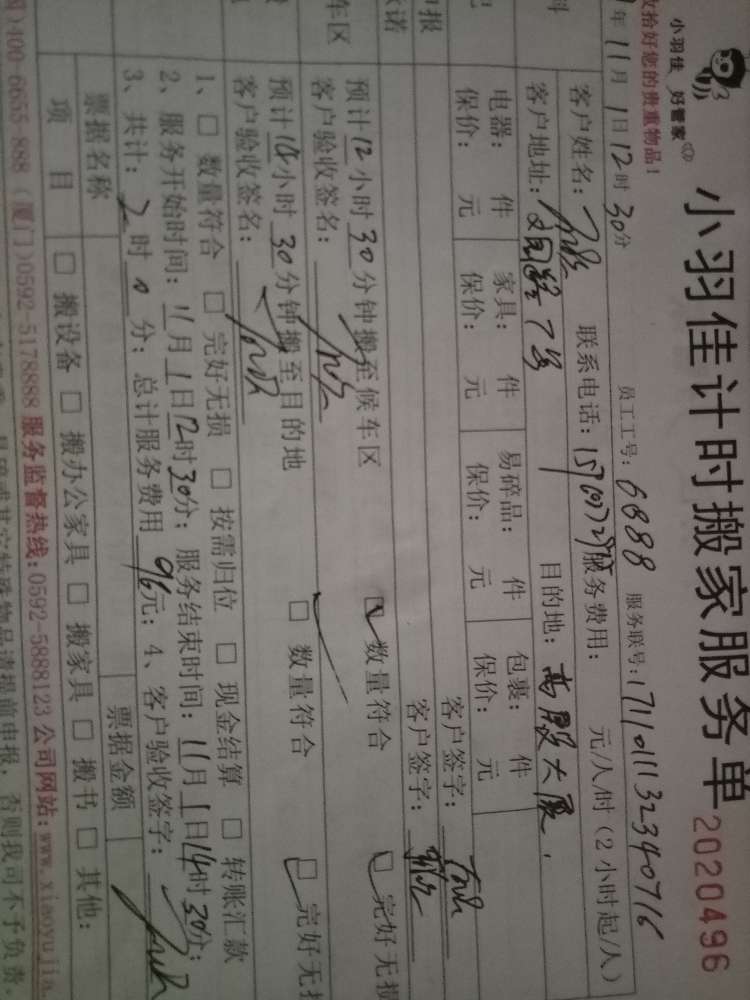 小羽佳 好管家
小羽佳计时搬家服务单 2020496
收拾好您的贵重物品!
年11月1日12时30分 员工工号:6888 服务联号:1711011132340716
客户姓名: 联系电话: 服务费用: 元/人/时(2小时起/人)
客户地址: 7号 目的地:高殿大厦
电器: 件 家具: 件 易碎品: 件 包裹: 件
保价: 元 保价: 元 保价: 元 保价: 元
客户签字:
客户签字:
预计12小时30分钟搬至候车区 数量符合 完好无损
客户验收签名:
预计 小时30分钟搬至目的地 数量符合 完好无
客户验收签名:
1、□ 数量符合 □ 完好无损 □ 按需归位 □ 现金结算 □ 转账汇款
2、服务开始时间:11月1日12时30分;服务结束时间:11月1日14时30分;
3、共计:2时0分;总计服务费用96元;4、客户验收签字:
票据名称 票据金额
项 目 □ 搬设备 □ 搬办公家具 □ 搬家具 □ 搬书 □ 其他:
)400-6655-888(厦门)0592-5178888 服务监督热线:0592-5888123 公司网站:www.xiaoyujia.
物品请提前申报,否则我司不予负责。